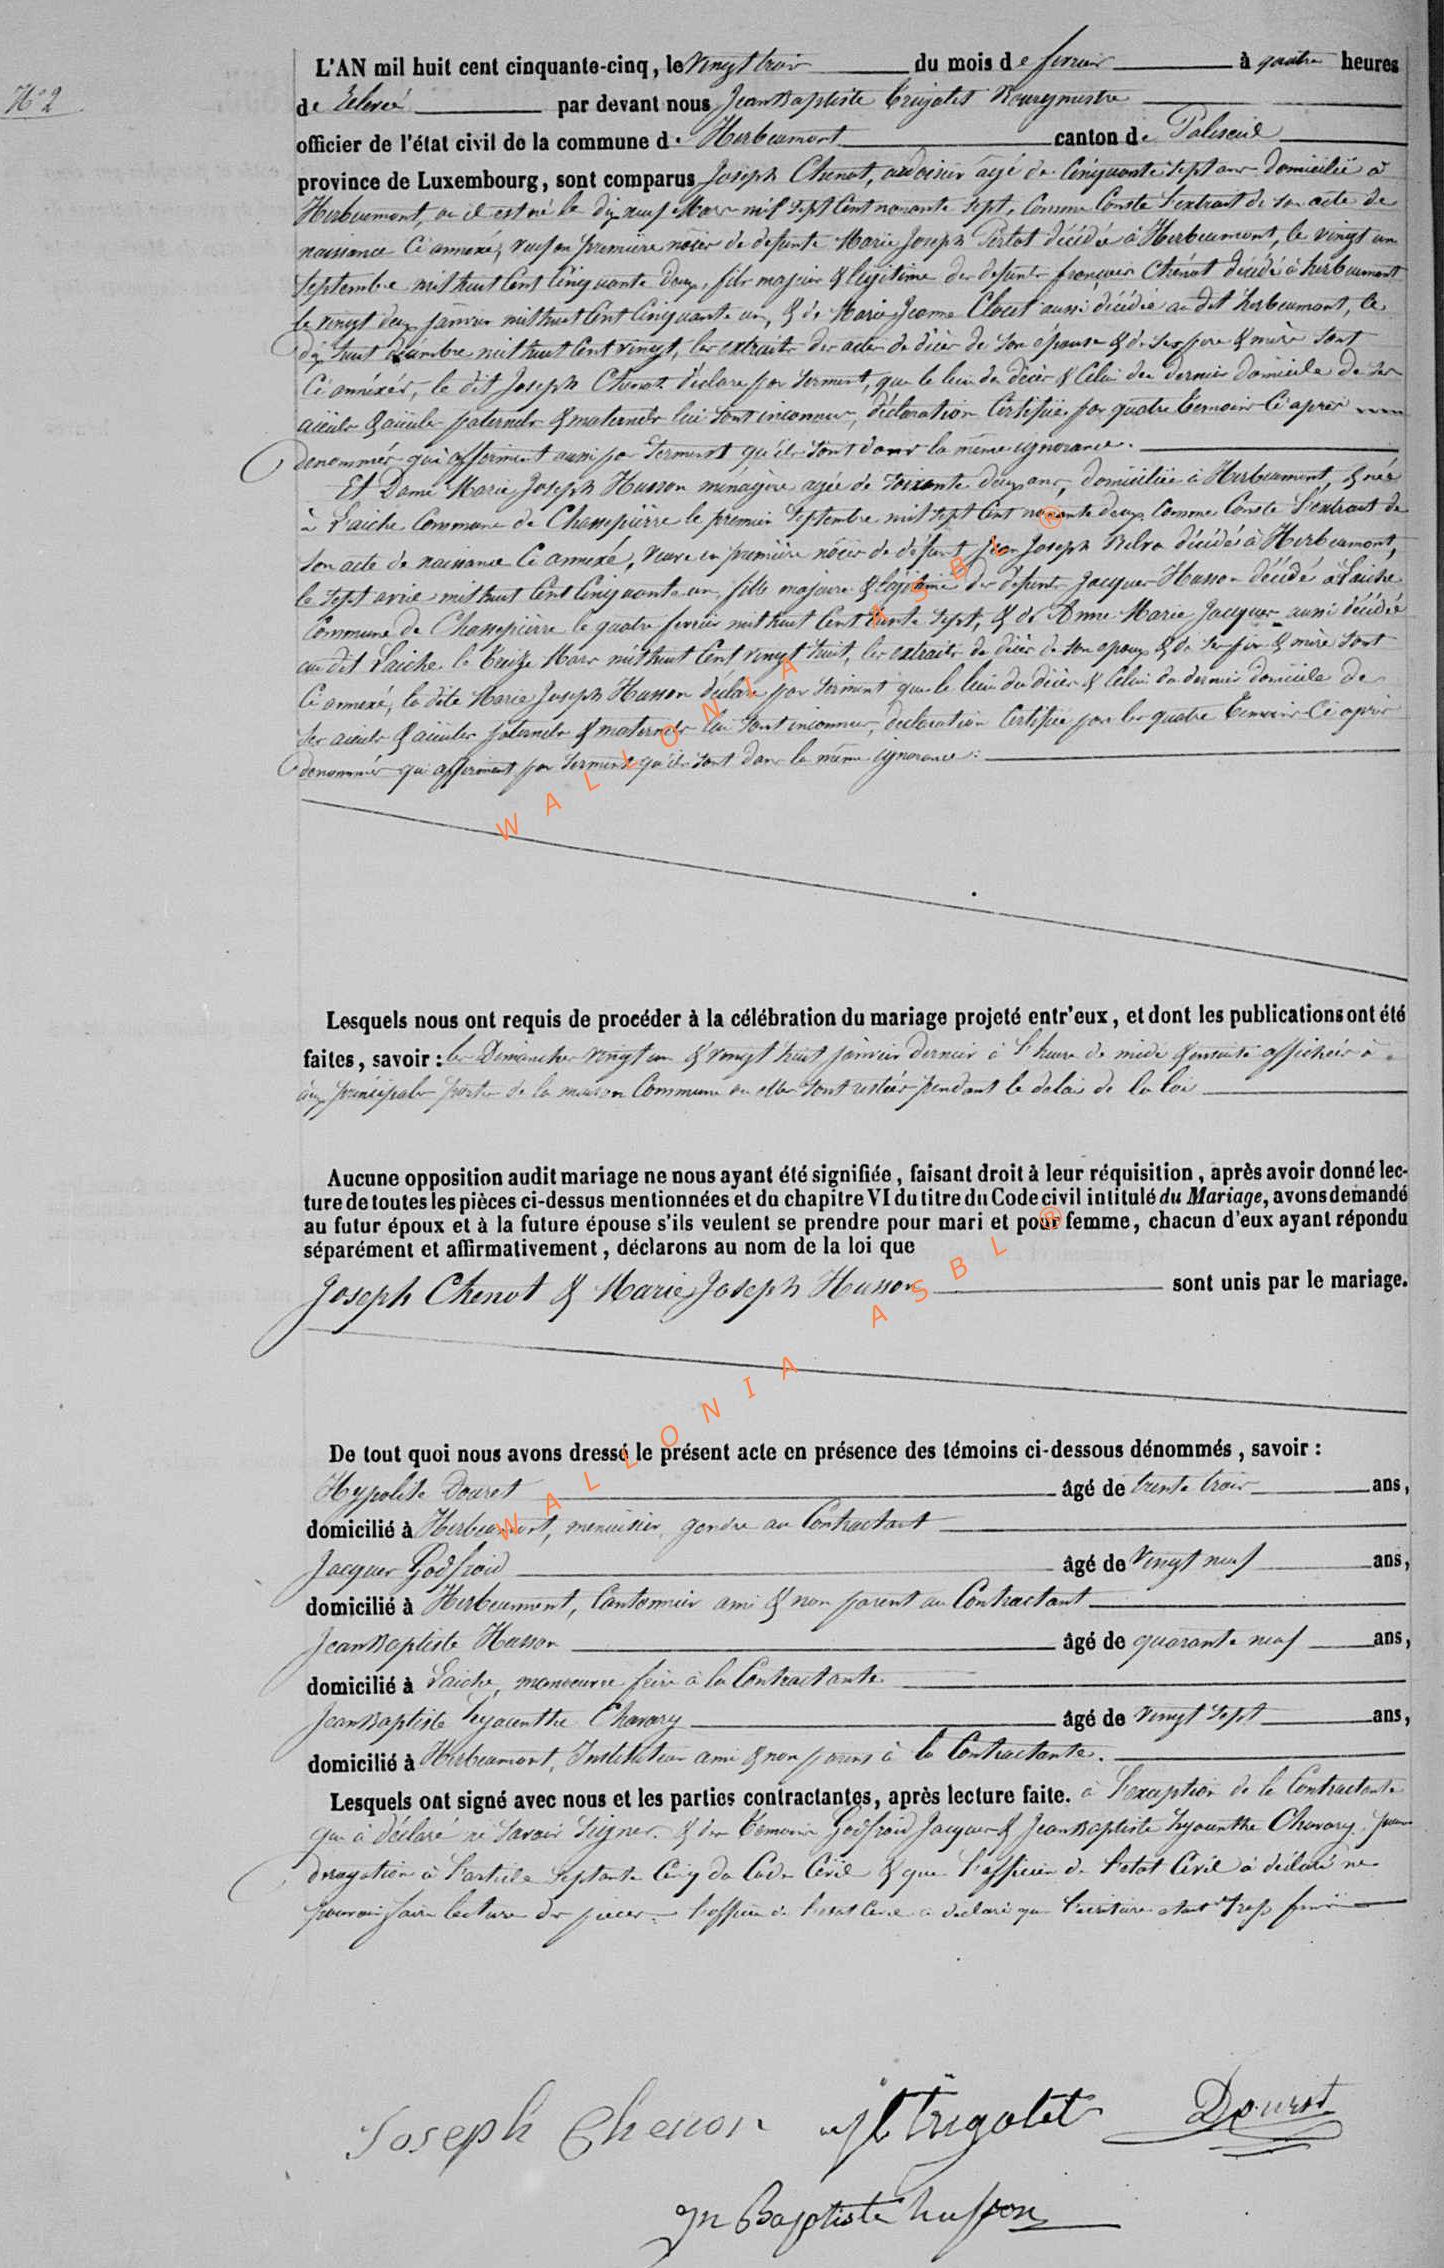 N° 2
L'AN mil huit cent cinquante-cinq, le vingt trois du mois de fevrier à quatre heures
de Relevée par devant nous Jean Baptiste Trigalet Bourgmestre
officier de l'état civil de la commune de Herbeumont canton de Paliseul
province de Luxembourg, sont comparus Joseph Chenot, ardoisier âgé de Cinquante Sept ans domicilié à
Herbeumont, ou il est né le dix neuf Mars mil Sept Cent nonante Sept, Comme Conste l'extrait de son acte de
naissance Ci annexé, veuf en premiere nôces de defunte Marie Joseph Pertot décédée à Herbeumont, le vingt un
Septembre mil huit Cent Cinquante Deux, fils majeur & legitime des defunts françois Chénot décédé à herbeumont
le vingt deux janvier mil huit Cent Cinquante un, & de Marie Jeanne Clouet aussi décédée au dit herbeumont, le
dix huit décembre mil huit Cent vingt, les extraits des actes de décès de Son épouse & de Ses pere & mère Sont
Ci annéxés, le dit Joseph Chenot déclare par Serment, que le lieu du décès & Celui du dernier domicile de Ses
aïeuls & aïeules paternels & maternels lui Sont inconnus, déclaration Certifiée par quatre temoins Ci après
denommés qui afferment aussi par Serment qu'ils Sont dans la même ignorance.
Et Dame Marie Joseph Husson ménagère agée de Soixante deux ans, domiciliée à Herbeumont, & née
à Laiche Commune de Chassepierre le premier Septembre mil sept Cent nonante deux Comme Conste l'extrait de
Son acte de naissance Ci annexé, veuve en première nôces de défunt Jean Joseph décédé à Herbeumont,
le Sept avril mil huit Cent Cinquante un, fille majeure & légitime des défunts Jacques Husson décédé à Laiche
Commune de Chassepierre le quatre fevrier mil huit Cent trente Sept, & de Anne Marie Jacques aussi décédée
au dit Laiche le treize Mars mil huit Cent vingt huit, les extraits de décès de Son epoux & de Ses pere & mère Sont
Ci annexé, la dite Marie Joseph Husson declare par Serment que le lieu du décès & Celui du dernier domicile de
Ses aieuls & aïeules paternels & maternels lui Sont inconnus, declaration Certifiée par les quatre Temoins Ci après
denommés qui afferment par Serment qu'ils Sont dans la même ignorance.
WALLONIA ASBL ®
Lesquels nous ont requis de procéder à la célébration du mariage projeté entr'eux, et dont les publications ont été
faites, savoir : les Dimanches vingt un & vingt huit janvier dernier à l'heure de midi & ensuite affichées à
aux principales portes de la maison Commune ou elles Sont restées pendant le delai de la loi
Aucune opposition audit mariage ne nous ayant été signifiée, faisant droit à leur réquisition, après avoir donné lec-
ture de toutes les pièces ci-dessus mentionnées et du chapitre VI du titre du Code civil intitulé du Mariage, avons demandé
au futur époux et à la future épouse s'ils veulent se prendre pour mari et pour femme, chacun d'eux ayant répondu
séparément et affirmativement, déclarons au nom de la loi que
Joseph Chenot & Marie Joseph Husson sont unis par le mariage.
WALLONIA ASBL ®
De tout quoi nous avons dressé le présent acte en présence des témoins ci-dessous dénommés, savoir :
Hypolite Douret âgé de trente trois ans,
domicilié à Herbeumont, menuisier, gendre au Contractant
Jacques Godfroid âgé de Vingt neuf ans,
domicilié à Herbeumont, Cantonnier ami & non parent au Contractant
Jean Baptiste Husson âgé de quarante neuf ans,
domicilié à Laiche, manoeuvre frère à la Contractante
Jean Baptiste hyacinthe Chavary âgé de vingt Sept ans,
domicilié à Herbeumont, Instituteur ami & non parens à la Contractante.
Lesquels ont signé avec nous et les parties contractantes, après lecture faite. à l'exception de la Contractante
qui à déclaré ne Savoir Signer. & des temoins Godfroid Jacques & Jean Baptiste hyacinthe Chavary. pour
drogation à l'article Septante Cinq du Code Civil & que l'officier de l'etat Civil à déclaré ne
pouvoir faire lecture des pieces. l'officier de l'etat Civil a declaré que l'ecriture etant trop
Joseph Chenon JB Trigalet Douret
Jn Baptiste husson